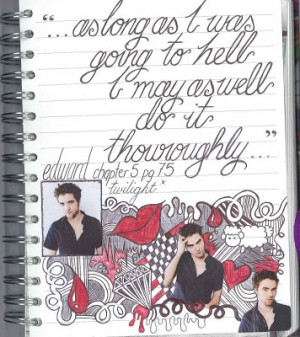 "...as long as I was
going to hell
I may as well
do it
thouroughly..."
edward chapter 5 pg 75
"twilight"